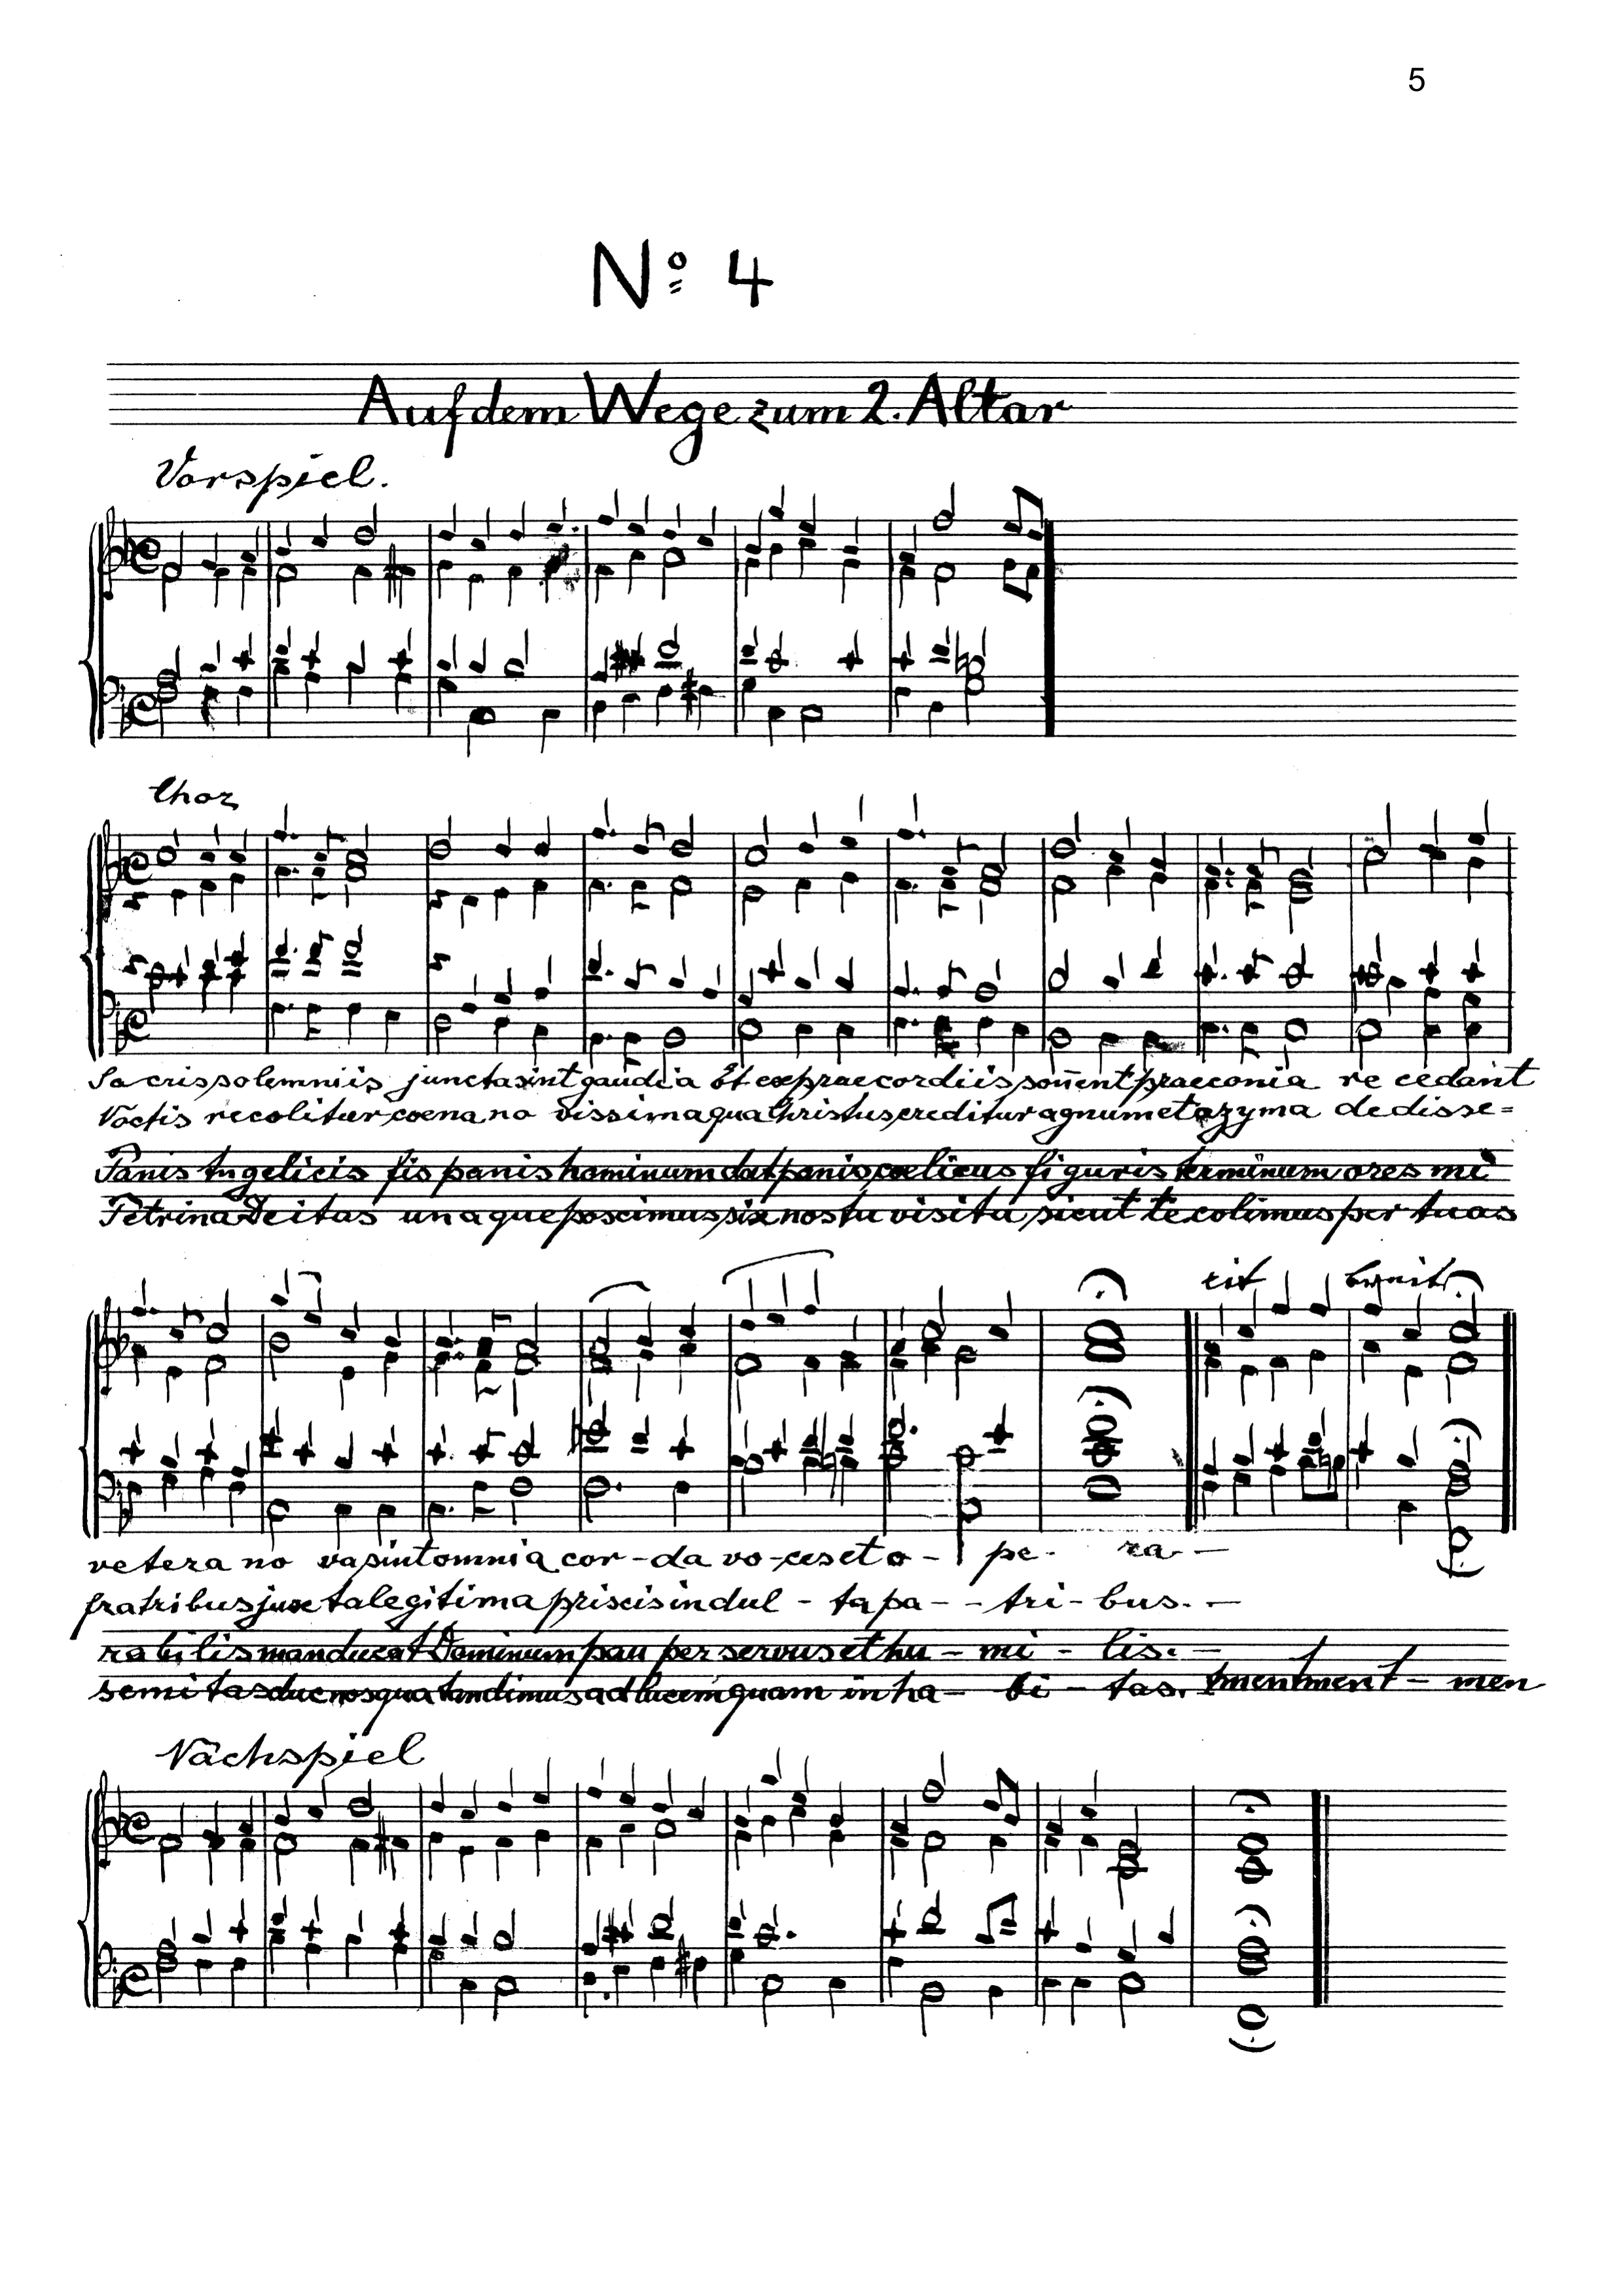 5
Nº 4
Auf dem Wege zum 2. Altar
Vorspiel.
Chor
Sacris solemniis juncta sint gaudia Et ex praecordiis sonent praeconia recedant
Noctis recolitur coena novissima qua Christus creditur agnum et azyma dedisse=
Panis Angelicis fis panis hominum dat panis coelicus figuris terminum O res mi
Te trina Deitas unaque poscimus six nos tu visita, sicut te colimus per tuas
rit breit
vetera nova sint omnia cor-da vo-ces et o- pe- ra-
fratribus juxta legitima priscis indul-ta pa--tri-bus.-
rabilis manducat Dominum pauper servus et hu-mi-lis.-
semitas duc nos quo tendimus ad lucem quam inha-bi-tas. Amen Amen A-men
Nachspiel